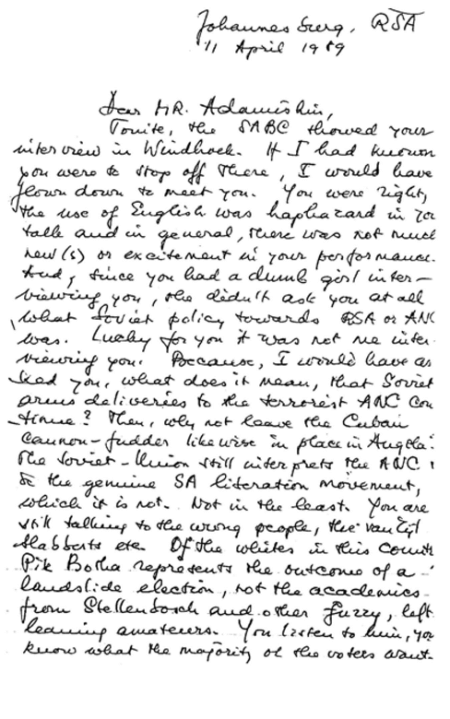 Johannesburg, RSA
11 April 1989
Dear MR. Adamishin,
Tonite, the SABC showed your
interview in Windhoek. If I had known
you were to stop off there, I would have
flown down to meet you. You were right,
the use of English was haphazard in
talk and in general, there was not much
new(s) or excitement in your performance.
And, since you had a dumb girl inter-
viewing you, she didn't ask you at all
what Soviet policy towards RSA or ANC
was. Lucky for you it was not me inter-
viewing you. Because, I would have as
ked you, what does it mean, that Soviet
arms deliveries to the terrorist ANC con
-tinue? Then, why not leave the Cuban
cannon-fudder likewise in place in Angola.
The Soviet-Union still interprets the ANC
the genuine SA liberation movement,
which it is not. Not in the least. You are
still talking to the wrong people, the van Zyl
Slabberts etc. Of the whites in this count
Pik Botha represents the outcome of a
landslide election, not the academics
from Stellenbosch and other fuzzy, left
leaning amateurs. You listen to him, you
know what the majority of the voters want.